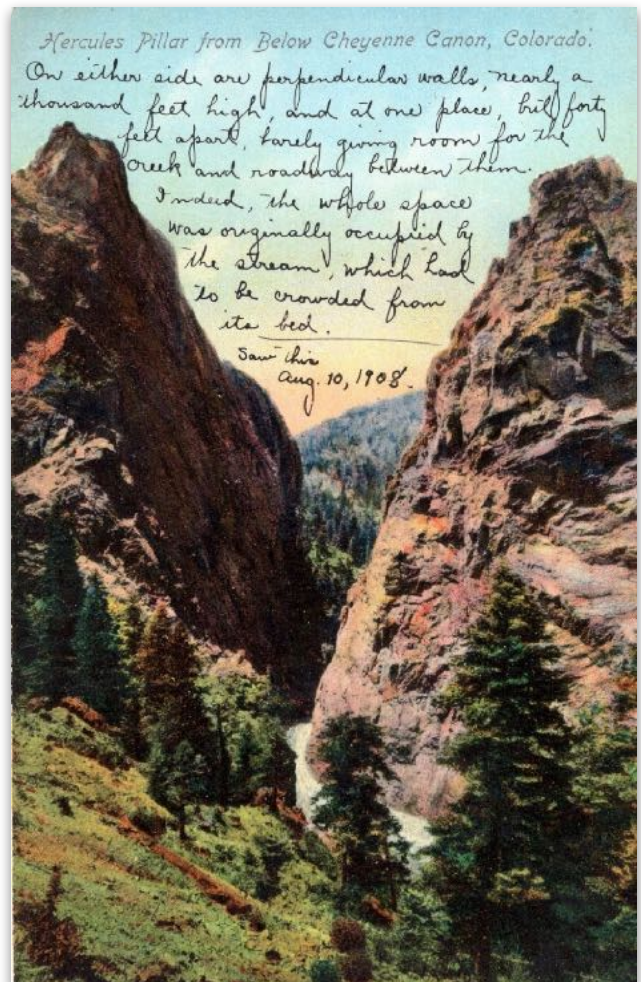 Hercules Pillar from Below Cheyenne Canon, Colorado.
On either side are perpendicular walls, nearly a
thousand feet high, and at one place, but forty
feet apart, barely giving room for the
creek and roadway between them.
Indeed, the whole space
was originally occupied by
the stream, which had
to be crowded from
its bed.
Saw this
Aug. 10, 1908.